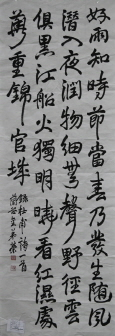 好雨知時節當春乃發生随風
潛入夜潤物細無聲野徑雲
俱黑江船火獨明曉看紅濕處
花重錦官城
錄杜甫詩一首